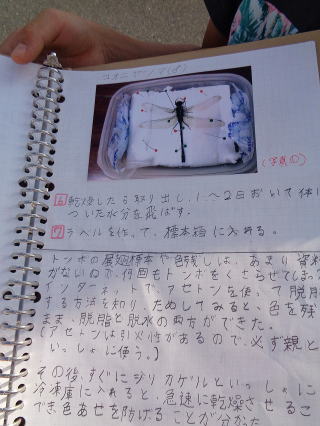 コオニヤンマ(♂)
(写真①)
⑥乾燥したら取り出し、1〜2日おいて体に
ついた水分を飛ばす。
⑦ラベルを作って、標本箱に入れる。
トンボの展翅標本や色残しは、あまり資料
がないので、何回もトンボをくさらせてしまっ
インターネットでアセトンを使って脱脂
する方法を知り、ためしてみると、色を残
まま、脱脂と脱水の両方ができた。
(アセトンは引火性があるので、必ず親と
いっしょに使う。)
その後、すぐにシリカゲルといっしょに
冷凍庫に入れると、急速に乾燥させるこ
でき、色あせを防げることが分かった